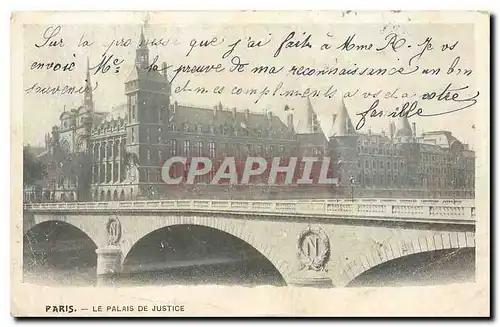 Sur la promesse que j'ai faite à Mme R. Je vs
envoie Mc la preuve de ma reconnaissance un bon
souvenir et mes compliments a vs et a votre
famille
CPARAMA.COM
N
N
PARIS. — LE PALAIS DE JUSTICE